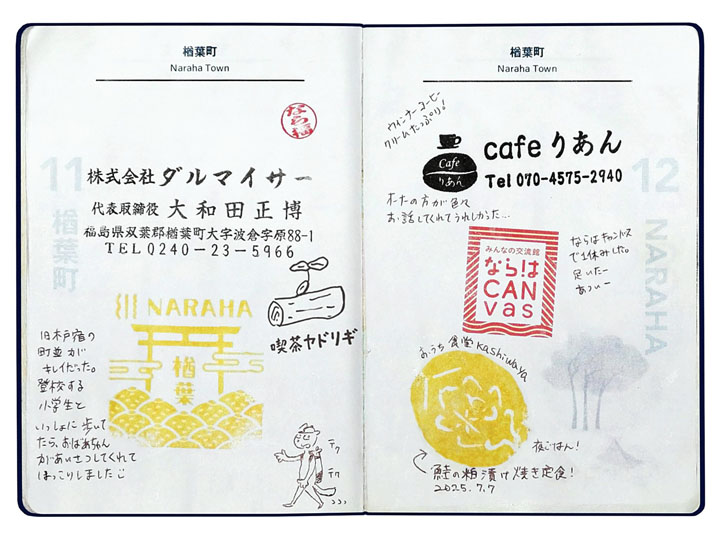 楢葉町
Naraha Town
なら福
11
楢葉町
株式会社 ダルマイサー
代表取締役 大和田正博
福島県双葉郡楢葉町大字波倉字原88-1
TEL0240-23-5966
NARAHA
楢葉
喫茶ヤドリギ
旧木戸宿の
町並が
キレイだった。
登校する
小学生と
いっしょに歩いて
たら、おばあちゃん
があいさつしてくれて
ほっこりしました
テク
テク
楢葉町
Naraha Town
ウィンナーコーヒー
クリームたっぷり!
cafe りあん
Cafe
りあん
Tel 070-4575-2940
オーナーの方が色々
お話してくれてうれしかった…
12
NARAHA
みんなの交流館
ならは
CAN
vas
ならはキャンバス
で1休みした。
足いたー
あつぃー
おうち食堂 Kashiwaya
夜ごはん!
鮭の粕漬け焼き定食!
2025.7.7